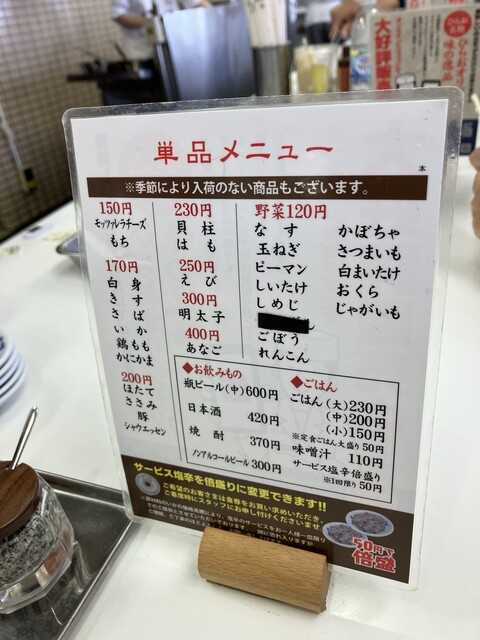 単品メニュー
本
※季節により入荷のない商品もございます。
150円
モッツァレラチーズ
もち
170円
白身
きす
さば
いか
鶏もも
かにかま
200円
ほたて
ささみ
豚
シャウエッセン
230円
貝柱
はも
250円
えび
300円
明太子
400円
あなご
野菜120円
なす
玉ねぎ
ピーマン
しいたけ
しめじ
ごぼう
れんこん
かぼちゃ
さつまいも
白まいたけ
おくら
じゃがいも
◆お飲みもの
瓶ビール(中)600円
日本酒 420円
焼酎 370円
ノンアルコールビール 300円
◆ごはん
ごはん(大)230円
(中)200円
(小)150円
※定食ごはん大盛り50円
味噌汁 110円
サービス塩辛倍盛り
※1回限り50円
サービス塩辛を倍盛りに変更できます!!
ご希望のお客さまは食券をお買い求めいただき、
ご着席時にスタッフにお申し付けくださいませ。
50円で
倍盛
大好評販売